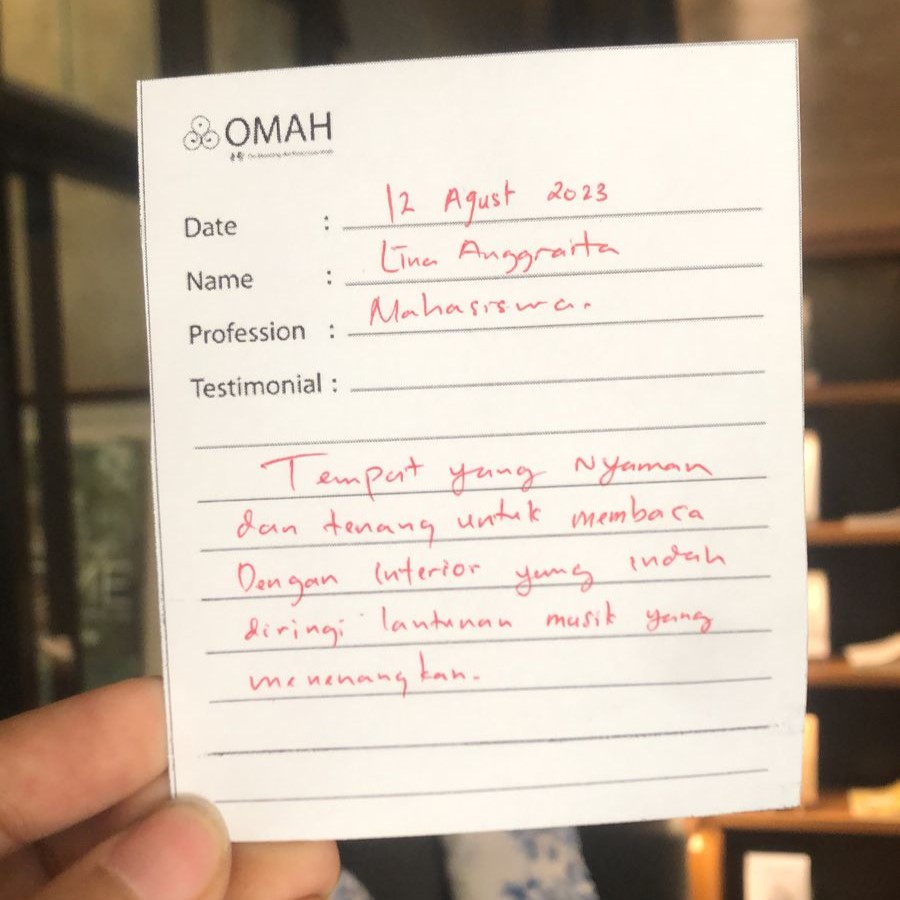 OMAH
Date : 12 Agust 2023
Name : Lina Anggraita
Profession : Mahasiswa.
Testimonial :
Tempat yang Nyaman
dan tenang untuk membaca
Dengan Interior yang indah
diringi lantunan musik yang
menenangkan.